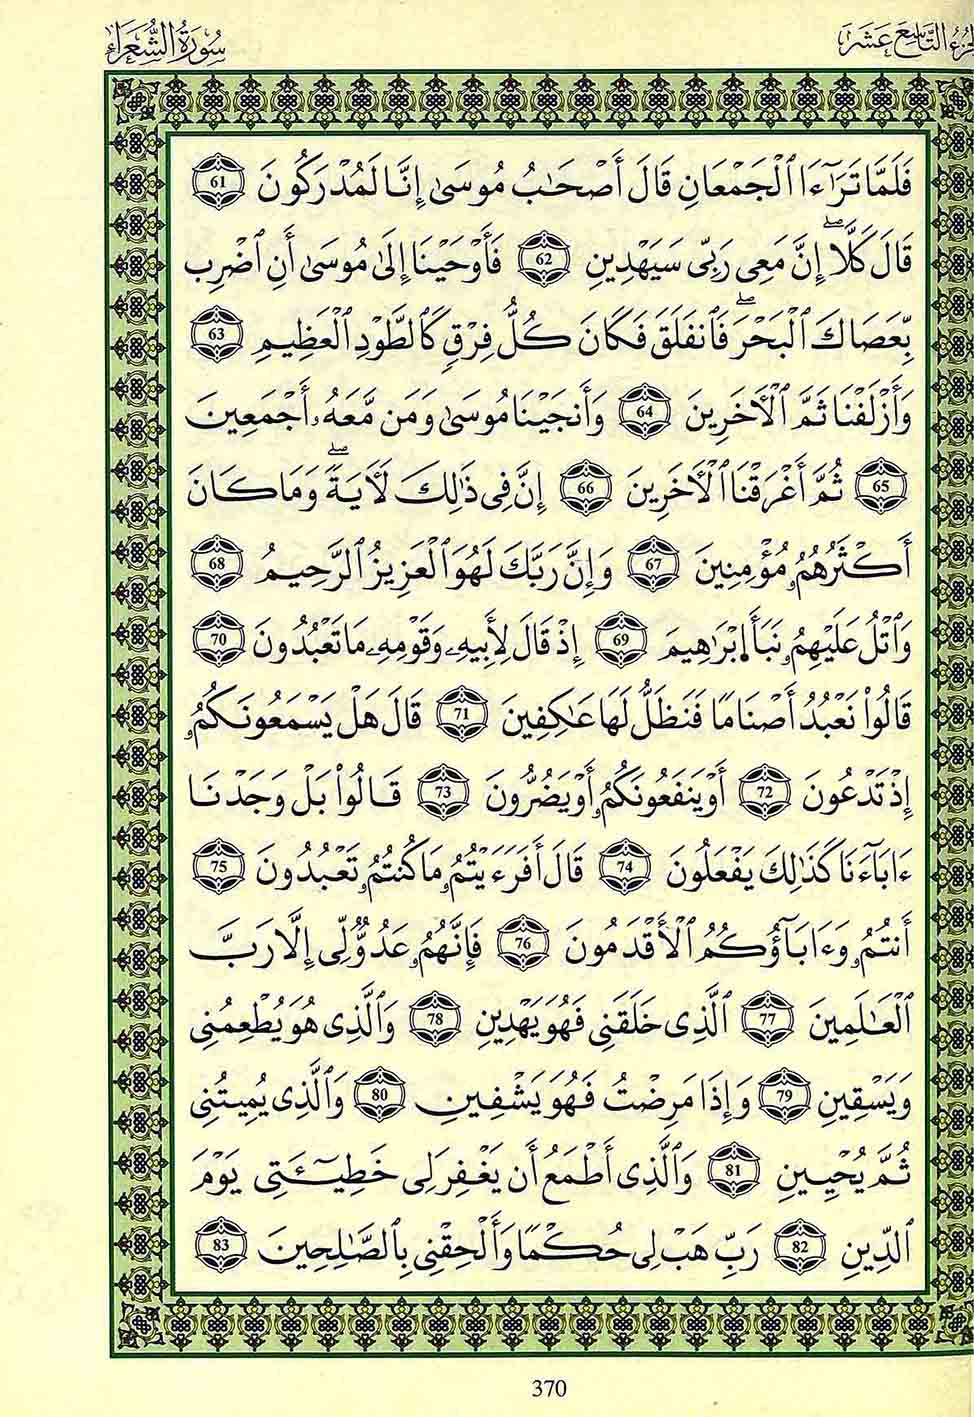 التَّاسِعَ عَشَرَ سُورَةُ الشُّعَرَاءِ
فَلَمَّا تَرَٰٓءَا ٱلْجَمْعَانِ قَالَ أَصْحَٰبُ مُوسَىٰ إِنَّا لَمُدْرَكُونَ 61
قَالَ كَلَّاۖ إِنَّ مَعِى رَبِّى سَيَهْدِينِ 62 فَأَوْحَيْنَا إِلَىٰ مُوسَىٰ أَنِ ٱضْرِب
بِّعَصَاكَ ٱلْبَحْرَۖ فَٱنفَلَقَ فَكَانَ كُلُّ فِرْقٍ كَٱلطَّوْدِ ٱلْعَظِيمِ 63
وَأَزْلَفْنَا ثَمَّ ٱلْأَخَرِينَ 64 وَأَنجَيْنَا مُوسَىٰ وَمَن مَّعَهُۥ أَجْمَعِينَ
65 ثُمَّ أَغْرَقْنَا ٱلْأَخَرِينَ 66 إِنَّ فِى ذَٰلِكَ لَأَيَةًۖ وَمَا كَانَ
أَكْثَرُهُمُۥ مُؤْمِنِينَ 67 وَإِنَّ رَبَّكَ لَهُوَ ٱلْعَزِيزُ ٱلرَّحِيمُ 68
وَٱتْلُ عَلَيْهِمُۥ نَبَأَ إِبْرَٰهِيمَ 69 إِذْ قَالَ لِأَبِيهِۦ وَقَوْمِهِۦ مَا تَعْبُدُونَ 70
قَالُوا۟ نَعْبُدُ أَصْنَامًا فَنَظَلُّ لَهَا عَٰكِفِينَ 71 قَالَ هَلْ يَسْمَعُونَكُمُۥ
إِذْ تَدْعُونَ 72 أَوْ يَنفَعُونَكُمُۥ أَوْ يَضُرُّونَ 73 قَالُوا۟ بَلْ وَجَدْنَا
ءَابَآءَنَا كَذَٰلِكَ يَفْعَلُونَ 74 قَالَ أَفَرَءَيْتُمُۥ مَا كُنتُمُۥ تَعْبُدُونَ 75
أَنتُمُۥ وَءَابَآؤُكُمُ ٱلْأَقْدَمُونَ 76 فَإِنَّهُمُۥ عَدُوٌّ لِّى إِلَّا رَبَّ
ٱلْعَٰلَمِينَ 77 ٱلَّذِى خَلَقَنِى فَهُوَ يَهْدِينِ 78 وَٱلَّذِى هُوَ يُطْعِمُنِى
وَيَسْقِينِ 79 وَإِذَا مَرِضْتُ فَهُوَ يَشْفِينِ 80 وَٱلَّذِى يُمِيتُنِى
ثُمَّ يُحْيِينِ 81 وَٱلَّذِى أَطْمَعُ أَن يَغْفِرَ لِى خَطِيٓـَٔتِى يَوْمَ
ٱلدِّينِ 82 رَبِّ هَبْ لِى حُكْمًا وَأَلْحِقْنِى بِٱلصَّٰلِحِينَ 83
370